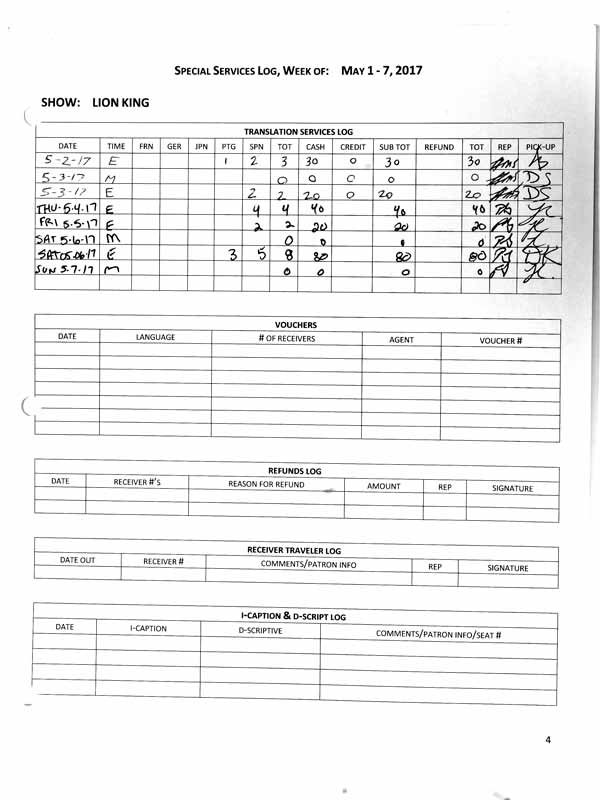 SPECIAL SERVICES LOG, WEEK OF: MAY 1 - 7, 2017
SHOW: LION KING
TRANSLATION SERVICES LOG
DATE TIME FRN GER JPN PTG SPN TOT CASH CREDIT SUB TOT REFUND TOT REP PICK-UP
5-2-17 E 1 2 3 30 0 30 30
5-3-17 M 0 0 0 0 0 DS
5-3-17 E 2 2 20 0 20 20 DS
THU-5.4.17 E 4 4 40 40 40
FRI 5.5.17 E 2 2 20 20 20
SAT 5.6.17 M 0 0 0 0
SAT 05.06.17 E 3 5 8 80 80 80 DK
SUN 5.7.17 M 0 0 0 0
VOUCHERS
DATE LANGUAGE # OF RECEIVERS AGENT VOUCHER #
REFUNDS LOG
DATE RECEIVER #'S REASON FOR REFUND AMOUNT REP SIGNATURE
RECEIVER TRAVELER LOG
DATE OUT RECEIVER # COMMENTS/PATRON INFO REP SIGNATURE
I-CAPTION & D-SCRIPT LOG
DATE I-CAPTION D-SCRIPTIVE COMMENTS/PATRON INFO/SEAT #
4